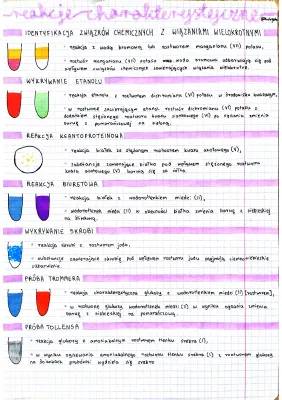 reakcje charakterystyczne
IDENTYFIKACJA ZWIĄZKÓW CHEMICZNYCH Z WIĄZANIAMI WIELOKROTNYMI
• reakcja z wodą bromową lub roztworem manganianu (VII) potasu,
• roztwór manganianu (VII) potasu oraz woda bromowa odbarwiają się pod
wpływem związków chemicznych zawierających wiązania wielokrotne.
WYKRYWANIE ETANOLU
• reakcja etanolu z roztworem dichromianu (VI) potasu w środowisku kwasowym,
• w roztworze zawierającym etanol roztwór dichromianu (VI) potasu z
dodatkiem stężonego roztworu kwasu siarkowego (VI) zmienia barwę
z pomarańczowej na zieloną.
REAKCJA KSANTOPROTEINOWA
• reakcja białek ze stężonym roztworem kwasu azotowego (V),
• substancje zawierające białko pod wpływem stężonego roztworu
kwasu azotowego (V) barwią się na żółto.
REAKCJA BIURETOWA
• reakcja białek z wodorotlenkiem miedzi (II),
• wodorotlenek miedzi (II) w obecności białka zmienia barwę z niebieskiej
na
WYKRYWANIE SKROBI
• reakcja skrobi z roztworem jodu,
• substancje zawierające skrobię pod wpływem roztworu jodu przyjmują ciemnoniebieskie
zabarwienie.
PRÓBA TROMMERA
• reakcja charakterystyczna glukozy z wodorotlenkiem miedzi (II)
• w roztworze glukozy wodorotlenek miedzi (II) w wyniku ogrzania zmienia
barwę z niebieskiej na pomarańczową.
PRÓBA TOLLENSA
• reakcja glukozy z amoniakalnym roztworem tlenku srebra (I),
• w wyniku ogrzewania amoniakalnego roztworu tlenku srebra (I) z roztworem glukozy
na ściankach probówki wydziela się srebro